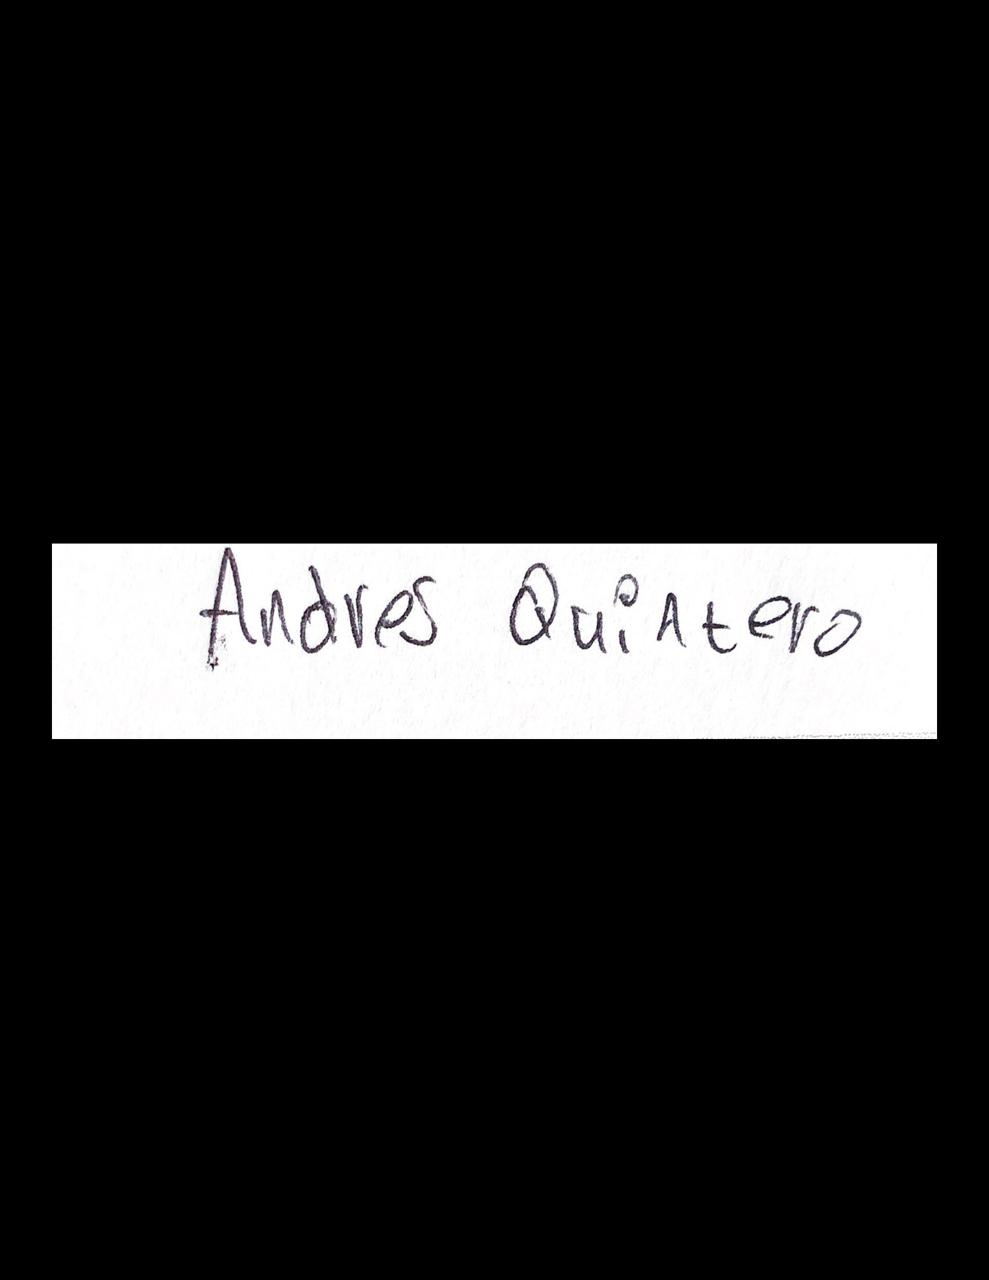 Andres Quintero